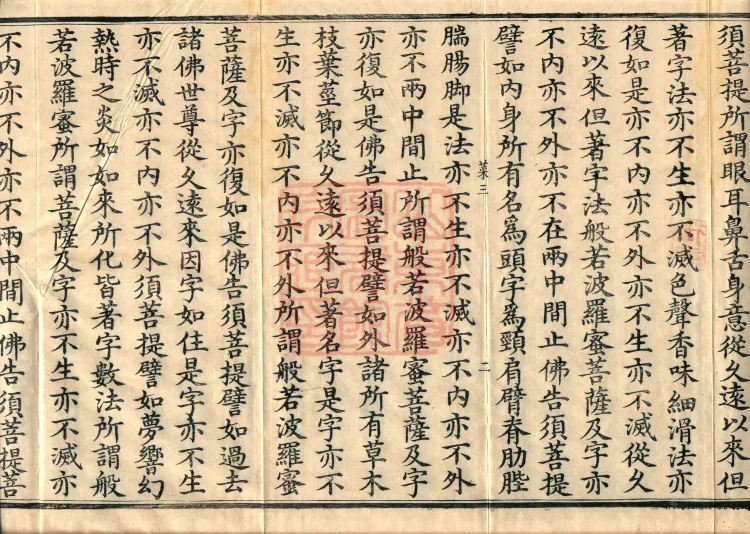 須菩提所謂眼耳鼻舌身意從久遠以來但
著字法亦不生亦不滅色聲香味細滑法亦
復如是亦不內亦不外亦不生亦不滅從久
遠以來但著字法般若波羅蜜菩薩及字亦
不內亦不外亦不在兩中間止佛告須菩提
譬如內身所有名為頭字為頸肩臂脊肋髀
菜三
二
腨腸脚是法亦不生亦不滅亦不內亦不外
亦不兩中間止所謂般若波羅蜜菩薩及字
亦復如是佛告須菩提譬如外諸所有草木
枝葉莖節從久遠以來但著名字是字亦不
生亦不滅亦不內亦不外所謂般若波羅蜜
菩薩及字亦復如是佛告須菩提譬如過去
諸佛世尊從久遠來因字如住是字亦不生
亦不滅亦不內亦不外須菩提譬如夢響幻
熱時之炎如如來所化皆著字數法所謂般
若波羅蜜所謂菩薩及字亦不生亦不滅亦
不內亦不外亦不兩中間止佛告須菩提菩